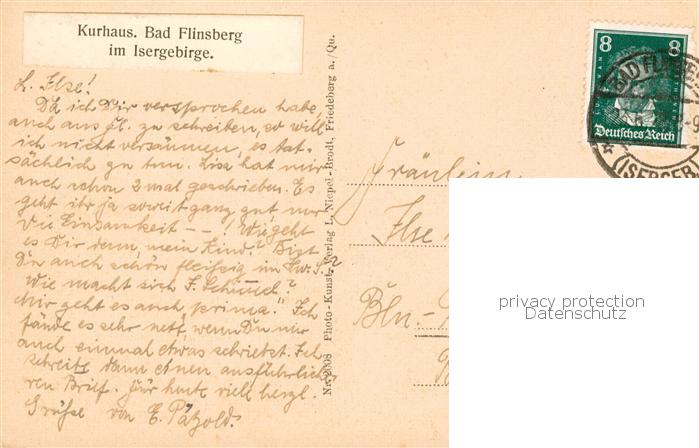 Kurhaus. Bad Flinsberg
im Isergebirge.
L. Ilse!
Da ich Dir versprochen habe,
auch aus Fl. zu schreiben, so will
ich nicht versäumen, es tat-
sächlich zu tun. Lisa hat mir
auch schon 2 mal geschrieben. Es
geht ihr ja soweit ganz gut nur
die Einsamkeit -- ! Wie geht
es Dir denn, mein Kind? Bist
Du auch schön fleißig im
Wie macht sich F.
Mir geht es auch „prima". Ich
fände es sehr nett, wenn Du mir
auch einmal etwas schriebst. Ich
schreibe dann einen ausführliche-
ren Brief. Für heute viele herzl.
Grüße von E. Pätzold.
Nr. 2008 Photo-Kunst-Verlag L. Niepel-Brodt, Friedeberg a./Qu.
8 8
LUDWIG VAN BEETHOVEN
Deutsches Reich
BAD FLINSBERG
(ISERGEB.)
Fräulein
Ilse
Bln.-
privacy protection
Datenschutz